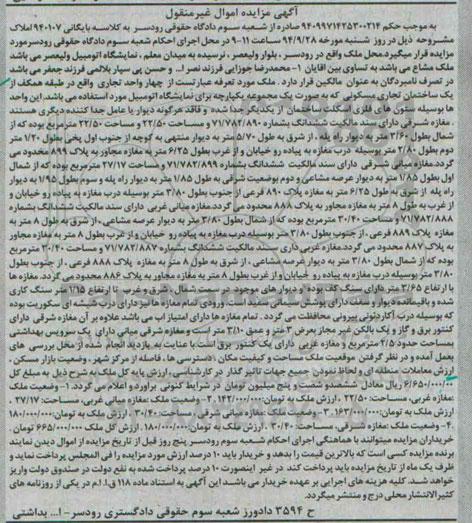 آگهی مزایده اموال غیرمنقول
به موجب حکم ۹۴۰۹۹۷۱۴۲۵۳۰۰۲۱۴ صادره از شعبه سوم دادگاه حقوقی رودسر به کلاسه بایگانی ۹۴۰۱۰۷ املاک
مشروحه ذیل در روز شنبه مورخه ۹۴/۹/۲۸ ساعت ۱۱-۹ در محل اجرای احکام شعبه سوم دادگاه حقوقی رودسر مورد
مزایده قرار میگیرد. محل ملک واقع در رودسر، بلوار ولیعصر، نرسیده به میدان معلم، نمایشگاه اتومبیل ولیعصر می باشد
ملک مشاع می باشد به تساوی بین آقایان ۱- محمدرضا جوزائی فرزند نصرا... و حسن پی سپار بلالمی فرزند جعفر می باشد
در تصرف نامبردگان به عنوان مالکین قرار دارد. ملک مورد تعرفه عبارتست از چهار واحد تجاری واقع در طبقه همکف از
یک ساختمان تجاری مسکونی که به صورت یک مجموعه یکپارچه برای نمایشگاه اتومبیل مورد استفاده می باشد. این واحد
ها بوسیله ستون های فلزی اسکلت ساختمان از یکدیگر جدا شده و فاقد هرگونه دیوار یا عامل جدا کننده دیگری هستند
. مغازه شرقی دارای سند مالکیت ششدانگ بشماره ۷۱/۷۸۲/۸۹۰ و مساحت ۲۲/۵۰ مترمربع بوده که از
شمال بطول ۳/۶۰ متر به دیوار راه پله. از شرق به طول ۵/۷۰ متر به دیوار منتهی به کوچه از جنوب اول پخی بطول ۱/۲۰ متر
دوم بطول ۲/۸۰ متر بوسیله درب مغازه به پیاده رو خیابان و از غرب بطول ۶/۲۵ متر به مغازه مجاور به پلاک ۸۹۹ محدود می
گردد. مغازه میانی شرقی دارای سند مالکیت ششدانگ بشماره ۷۱/۷۸۲/۸۹۹ و مساحت ۲۷/۱۷ مترمربع بوده که از شمال
اول بطول ۱/۸۵ متر به دیوار عرصه مشاعی و دوم بوضعیت شرقی به طول ۱/۸۵ متر به دیوار راه پله و سوم بطول ۱/۹۵ به دیوار
راه پله از شرق به طول ۶/۲۵ متر به مغازه پلاک ۸۹۰ فرعی از جنوب بطول ۳/۸۰ متر بوسیله درب مغازه به پیاده رو خیابان و
از غرب به طول ۸ متر به مغازه مجاور به پلاک ۸۸۸ محدود می گردد. مغازه میانی غربی دارای سند مالکیت ششدانگ بشماره
۷۱/۷۸۲/۸۸۸ و مساحت ۳۰/۴۰ مترمربع بوده که از شمال بطول ۳/۸۰ متر به دیوار عرصه مشاعی. از شرق به طول ۸ متر به
مغازه پلاک ۸۸۹ فرعی. از جنوب بطول ۳/۸۰ متر بوسیله درب مغازه به پیاده رو خیابان و از غرب بطول ۸ متر به مغازه مجاور
به پلاک ۸۸۷ محدود می گردد. مغازه غربی دارای سند مالکیت ششدانگ بشماره ۷۱/۷۸۲/۸۸۷ و مساحت ۳۰/۴۰ مترمربع
بوده که از شمال بطول ۳/۸۰ متر به دیوار عرصه مشاعی. از شرق به طول ۸ متر به مغازه پلاک ۸۸۸ فرعی. از جنوب بطول
۳/۸۰ متر بوسیله درب مغازه به پیاده رو خیابان و از غرب بطول ۸ متر به مغازه مجاور به پلاک ۸۸۶ محدود می گردد. مغازه ها
با ارتفاع ۳/۶۵ متر دارای سنگ کف بوده و دیوار های موجود در سمت شمال. شرق و غرب با ارتفاع ۱/۱۵ متر سنگ کاری
شده و باقیمانده دیوار و سقف دارای پوشش می باشد. درب ورودی تمام مغازه ها درب شیشه ای سکوریت بوده
که بوسیله درب آکاردئونی بیرونی محافظت می گردد. تمام مغازه ها دارای امتیاز آب می باشد علاوه بر آن مغازه شرقی دارای
کنتور برق و گاز و یک بالکن غیر مجاز بعرض ۳ متر و عمق ۳/۱۰ متر است و مغازه شرقی میانی دارای یک سرویس بهداشتی
بمساحت حدود ۲/۵ مترمربع و مغازه غربی دارای یک کنتور برق است با عنایت به بازدید انجام شده از محل بررسی های
بعمل آمده و در نظر گرفتن موقعیت ملک مساحت و کیفیت مکان دسترسی ها. فاصله از مرکز شهر. وضعیت بازار مسکن.
ارزش معاملات منطقه ای و لحاظ نمودن جمیع جهات تاثیر گذار در کارشناسی. ارزش پایه کل ملک به شرح ذیل به مبلغ کل
۶/۶۵۰/۰۰۰/۰۰۰ ریال معادل ششصد و شصت و پنج میلیون تومان در شرایط کنونی برآورد و اعلام می گردد. ۱- وضعیت ملک
مغازه غربی. مساحت: ۲۲/۵۰. ارزش ملک به تومان: ۱۴۲/۰۰۰/۰۰۰ ۲- وضعیت ملک: مغازه میانی غربی. مساحت: ۲۷/۱۷.
ارزش ملک به تومان: ۱۶۳/۰۰۰/۰۰۰. ۳- وضعیت ملک مغازه میانی شرقی. مساحت: ۳۰/۴۰. ارزش ملک به تومان: ۱۸۰/۰۰۰/۰۰۰
. ۴- وضعیت ملک: مغازه شرقی. مساحت: ۳۰/۴۰. ارزش ملک به تومان: ۱۸۰/۰۰۰/۰۰۰. ارزش کل ملک ۶۶۵/۰۰۰/۰۰۰ تومان
خریداران مزایده میتوانند با هماهنگی اجرای احکام شعبه سوم رودسر پنج روز قبل از تاریخ مزایده از اموال دیدن نمایند
برنده مزایده کسی است که بالاترین قیمت را بدهد و خریدار باید ۱۰ درصد ارزش مورد مزایده را فی المجلس پرداخت نماید و
ظرف یک ماه از تاریخ مزایده باید پرداخت کند در غیر اینصورت ۱۰ درصد پرداخت شده به نفع دولت در صندوق دولت واریز
خواهد شد. کلیه هزینه های اجرایی بر عهده خریدار می باشد. این آگهی به استناد ماده ۱۱۸ ق.ا.م در یکی از روزنامه های
کثیرالانتشار محلی درج و منتشر میگردد.
ح ۳۵۹۴ دادورز شعبه سوم حقوقی دادگستری رودسر- ا... بداشتی